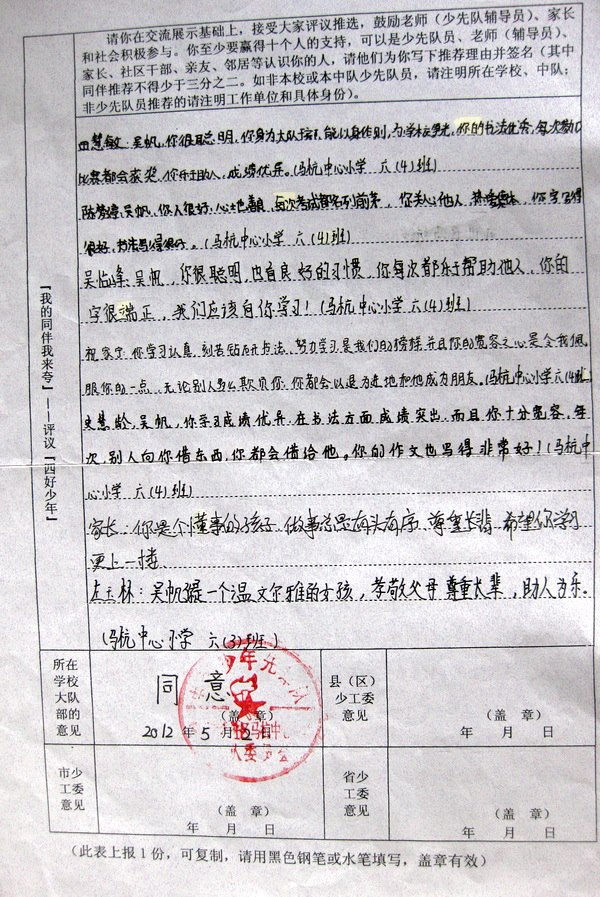 请你在交流展示基础上，接受大家评议推选，鼓励老师（少先队辅导员）、家长
和社会积极参与。你至少要赢得十个人的支持，可以是少先队员、老师（辅导员）、
家长、社区干部、亲友、邻居等认识你的人，请他们为你写下推荐理由并签名（其中
同伴推荐不得少于三分之二。如非本校或本中队少先队员，请注明所在学校、中队；
非少先队员推荐的请注明工作单位和具体身份）。
『我的同伴我来夸』——评议『四好少年』
慧敏：吴帆，你很聪明，你身为大队干部，能以身作则，为学校争光，你的书法优秀，每次参加
比赛都会获奖，你乐于助人，成绩优异。（马杭中心小学 六（4）班）
吴帆，你人很好，心地善良，每次考试都名列前茅，你关心他人，你字写得
很好，书法写得很好。（马杭中心小学 六（4）班）
吴临峰：吴帆，你很聪明，也有良好的习惯，你每次都乐于帮助他人，你的
字很端正，我们应该向你学习！（马杭中心小学 六（4）班）
祝家宁：你学习认真，刻苦钻研书法，努力学习是我们的榜样并且你的宽容之心是令我佩
服你的一点，无论别人怎么欺负你，你都会以退为进地和他成为朋友。（马杭中心小学六（4）班）
史慧龄：吴帆，你学习成绩优异，在书法方面成绩突出，而且你十分宽容，每
次，别人向你借东西，你都会借给他。你的作文也写得非常好！（马杭中
心小学 六（4）班）
家长：你是个懂事的孩子，做事总是有头有序，尊重长辈，希望你学习
更上一楼
左玉林：吴帆是一个温文尔雅的女孩，孝敬父母，尊重长辈，助人为乐。
（马杭中心小学 六（3）班）
所在
学校
大队
部的
意见
同意
（盖 章）
2012 年 5 月 2 日
县（区）
少工委
意见
（盖 章）
年 月 日
市少
工委
意见
（盖 章）
年 月 日
省少
工委
意见
（盖 章）
年 月 日
（此表上报 1 份，可复制，请用黑色钢笔或水笔填写，盖章有效）